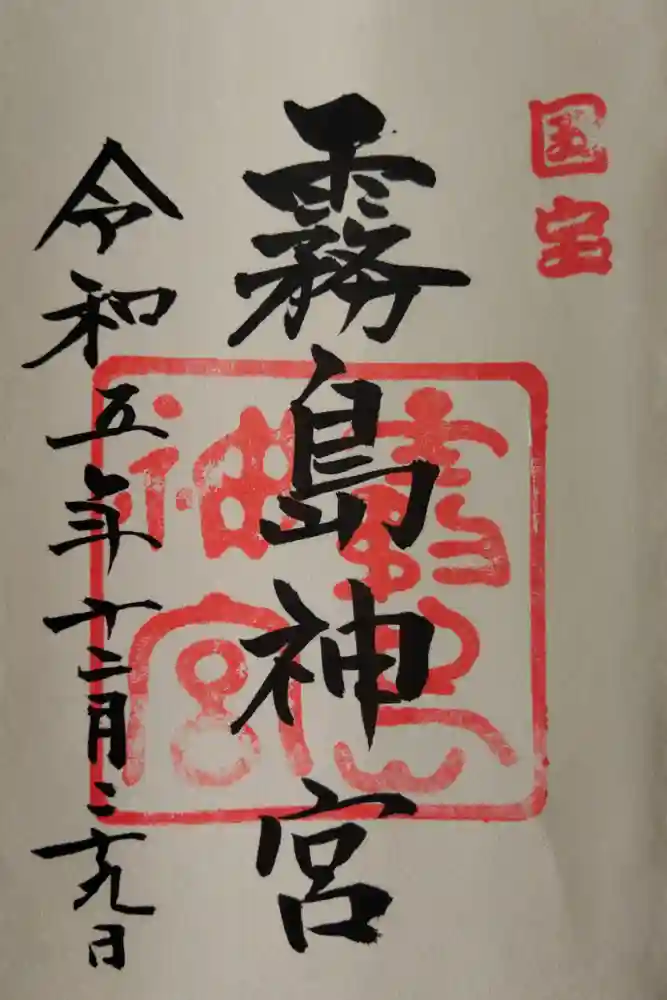 国宝
霧島神宮
霧島神宮
令和五年十二月二十九日